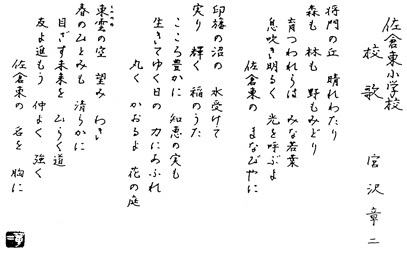 佐倉東小学校
校歌 宮沢章二
将門の丘 晴れわたり
森も 林も 野もみどり
育つわれらは みな若葉
息吹き明るく 光を呼ぶよ
佐倉東の まなびやに
印旛の沼の 水受けて
実り 輝く 稲のうた
こころ豊かに 知恵の実も
生きてゆく日の 力にあふれ
丸く かおるよ 花の庭
東雲の空 望み わき
春のひとみも 清らかに
目ざす未来を ひらく道
友よ進もう 仲よく 強く
佐倉東の 名を 胸に